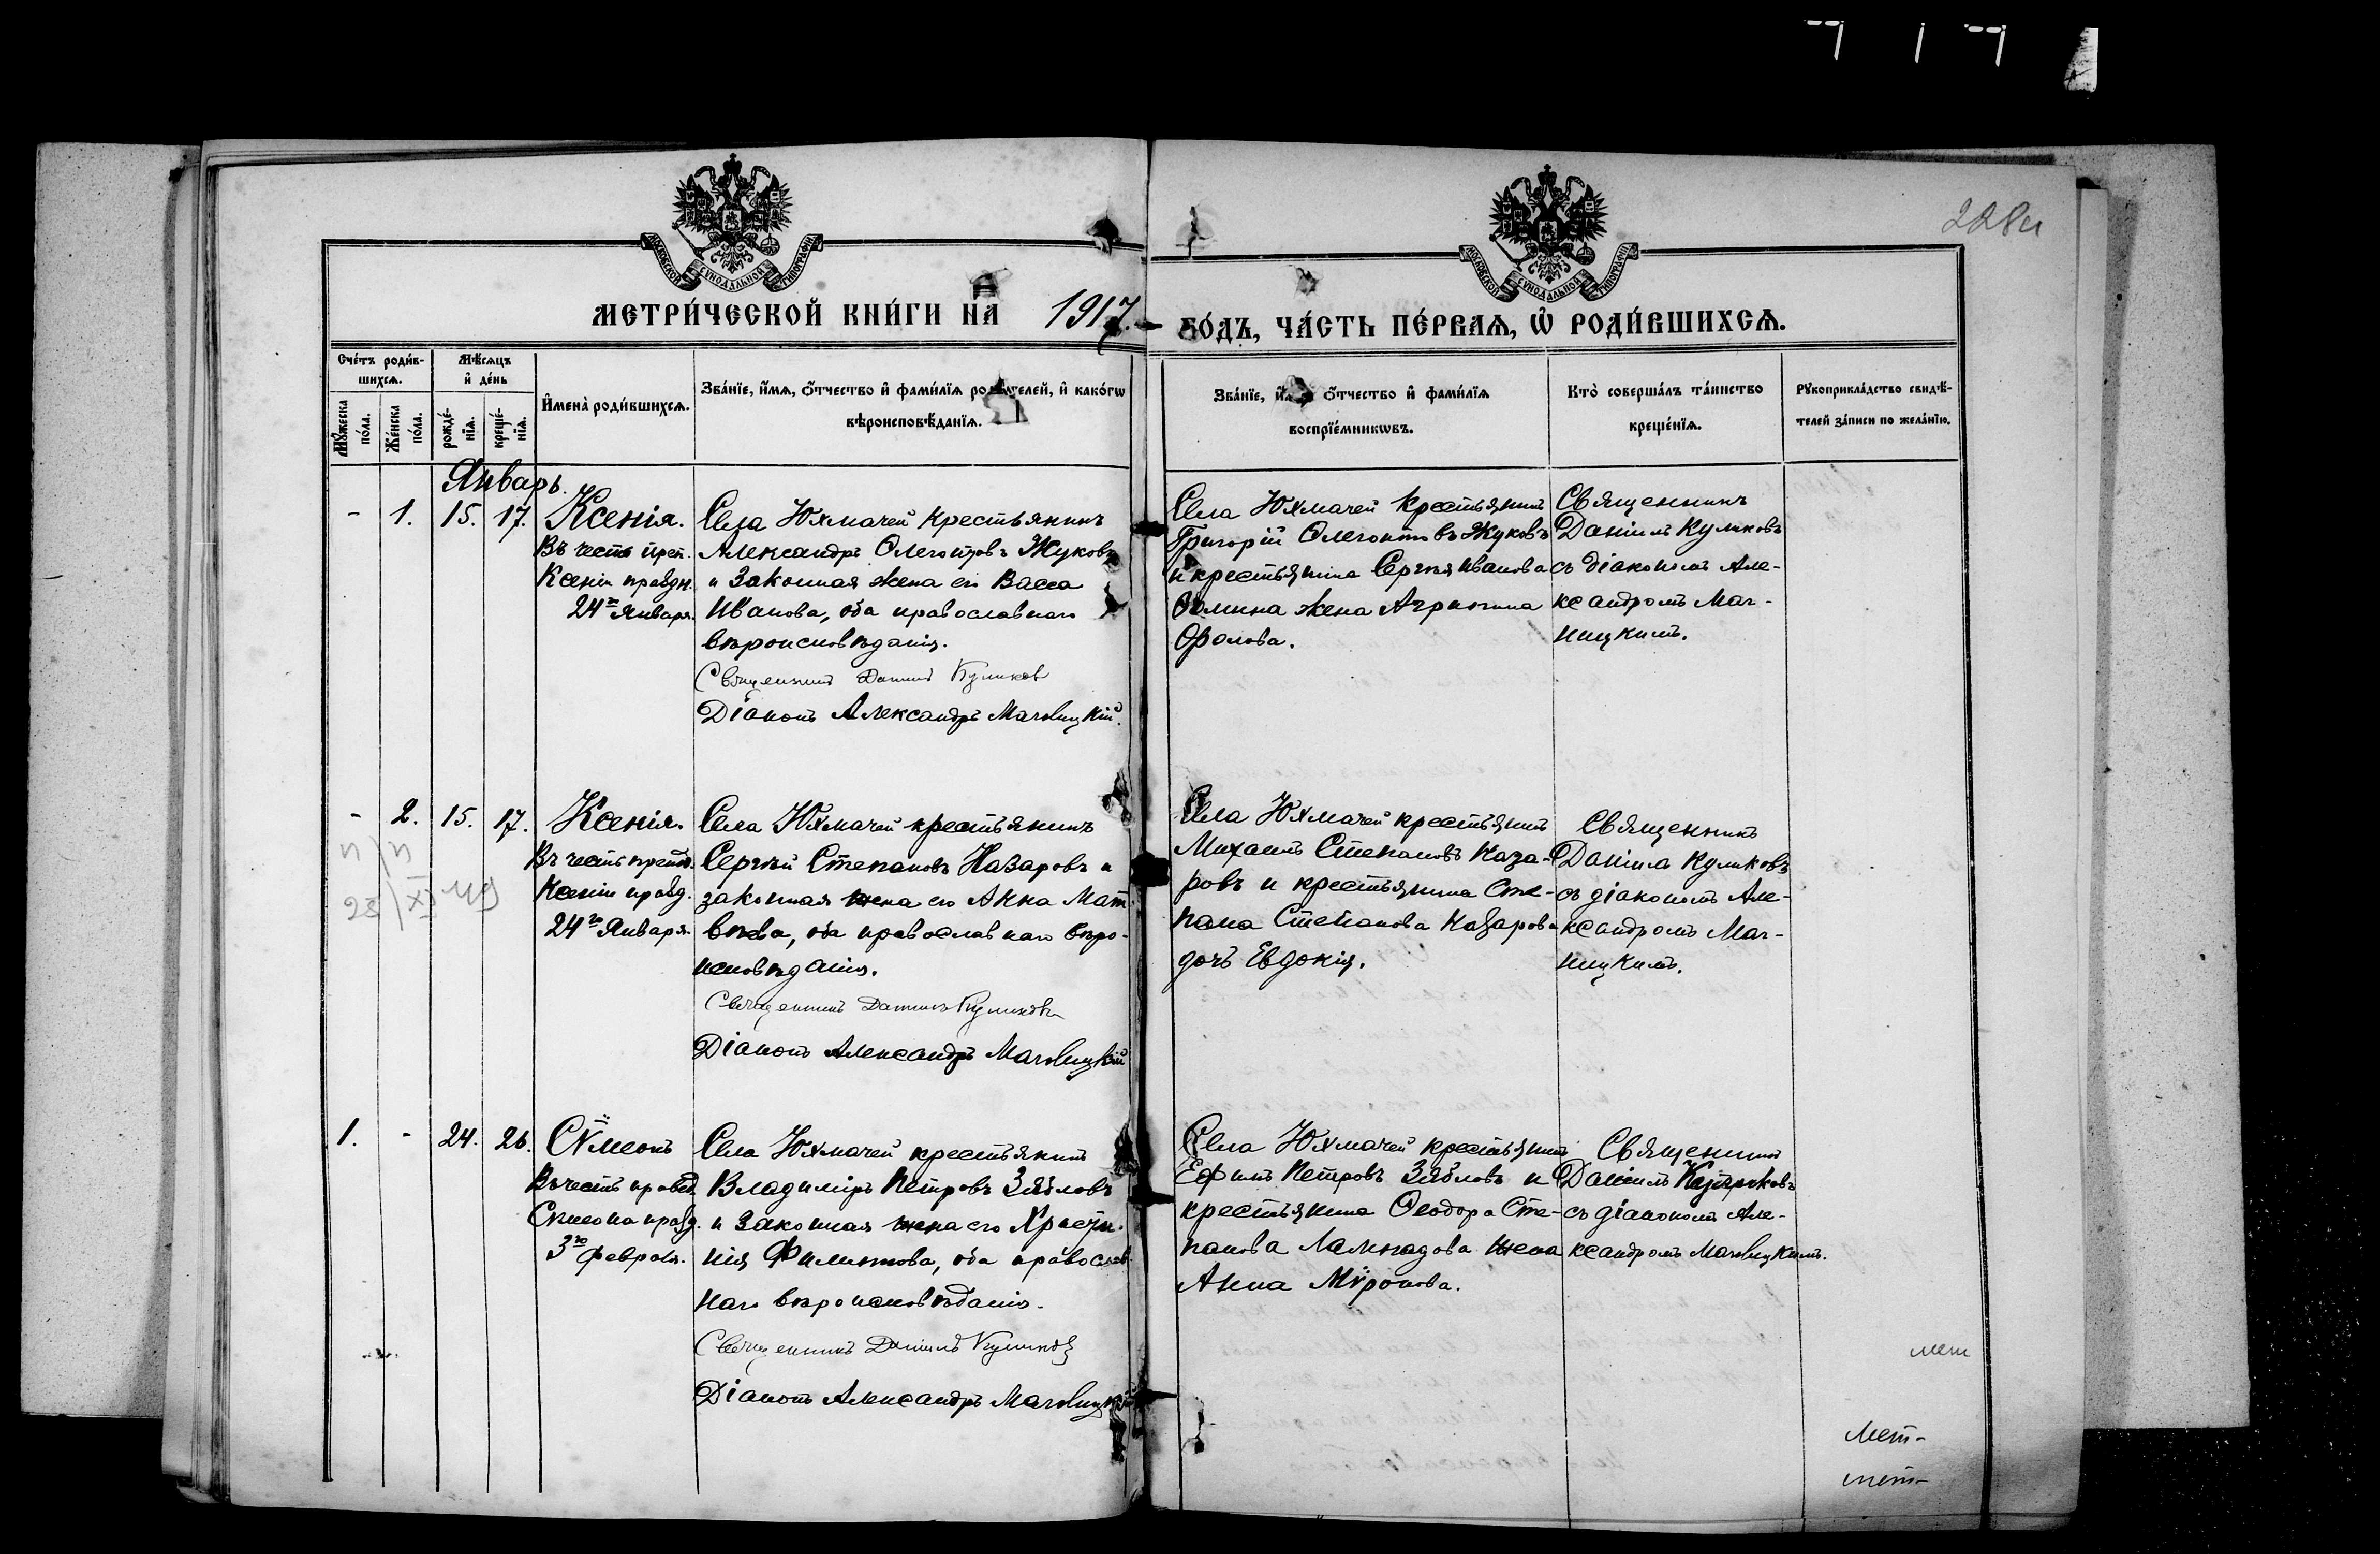 228
МОСКОВСКОЙ СѴНОДАЛЬНОЙ ТИПОГРАФІИ
МОСКОВСКОЙ СѴНОДАЛЬНОЙ ТИПОГРАФІИ
МЕТРИ́ЧЕСКОЙ КНИ́ГИ НА 1917. ГО́ДЪ, ЧА́СТЬ ПЕ́РВАѦ, Ѡ҆ РОДИ́ВШИХСѦ.
Сче́тъ роди́в-
шихсѧ.
Мѣ́сѧцъ
и҆ де́нь
Мꙋ́жеска
по́ла.
Же́нска
по́ла.
рожде́-
нїѧ.
креще́-
нїѧ.
И҆мена̀ роди́вшихсѧ.
Зва́нїе, и҆́мѧ, ѻ҆́тчество и҆ фами́лїѧ роди́телей, и҆ како́гѡ
вѣроисповѣ́данїѧ.
Зва́нїе, и҆́мѧ ѻ҆́тчество и҆ фами́лїѧ
воспрїе́мникѡвъ.
Кто̀ соверша́лъ та́инство
креще́нїѧ.
Рꙋкоприкла́дство свидѣ́-
телей за́писи по жела́нїю.
Январь.
- 1. 15. 17. Ксенія.
Въ честь преп.
Ксеніи праздн.
24го Января.
Села Юхмачей крестьянинъ
Александръ Жуковъ
и законная жена его Васса
Иванова, оба православнаго
вѣроисповѣданія.
Священникъ Даніилъ Куликовъ
Діаконъ Александръ
Села Юхмачей крестьянинъ
Григорій Жуковъ
и крестьянина Сергѣя Иванова
Ѳомина жена Агрипина
Фролова.
Священникъ
Даніилъ Куликовъ
съ діакономъ Але-
ксандромъ Маг-
ницкимъ.
- 2. 15. 17. Ксенія.
Въ честь препод.
Ксеніи празд.
24го Января.
Села Юхмачей крестьянинъ
Сергѣй Степановъ Назаровъ и
законная жена его Анна Мат-
вѣева, оба православнаго вѣро-
исповѣданія.
Священникъ Даніилъ Куликовъ
Діаконъ Александръ
Села Юхмачей крестьянинъ
Михаилъ Степановъ Наза-
ровъ и крестьянина Сте-
пана Степанова Назарова
дочь Евдокія.
Священникъ
Даніилъ Куликовъ
съ діакономъ Але-
ксандромъ Маг-
ницкимъ.
1. - 24. 26. Сѵмеонъ
Въ честь правед.
Сѵмеона празд.
3го февраля.
Села Юхмачей крестьянинъ
Владиміръ Петровъ Зябловъ
и законная жена его Христи-
нія Филиппова, оба православ-
наго вѣроисповѣданія.
Священникъ Даніилъ Куликовъ
Діаконъ Александръ
Села Юхмачей крестьянинъ
Ефимъ Петровъ Зябловъ и
крестьянина Ѳеодора Сте-
панова Лампадова жена
Анна Мѵронова.
Священникъ
Даніилъ Куликовъ
съ діакономъ Але-
ксандромъ
мет
мет-
мет-